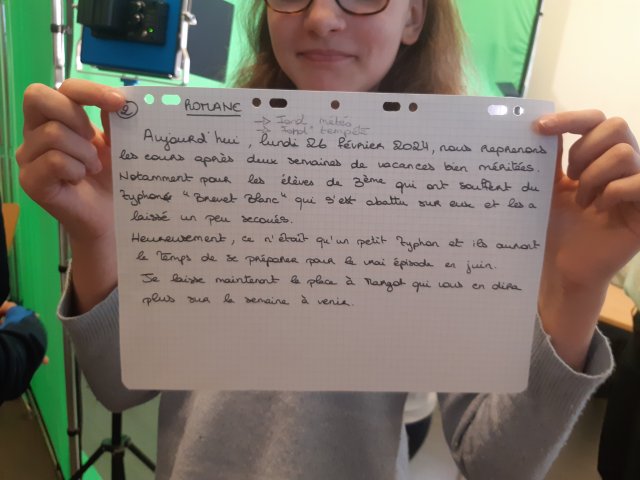 ② ROMANE
→ Fond météo
→ Fond tempête
Aujourd'hui, lundi 26 février 2024, nous reprenons
les cours après deux semaines de vacances bien méritées.
Notamment pour les élèves de 3ème qui ont souffert du
typhon "Brevet Blanc" qui s'est abattu sur eux et les a
laissé un peu secoués.
Heureusement, ce n'était qu'un petit typhon et ils auront
le temps de se préparer pour le vrai épisode en juin.
Je laisse maintenant la place à Margot qui vous en dira
plus sur la semaine à venir.